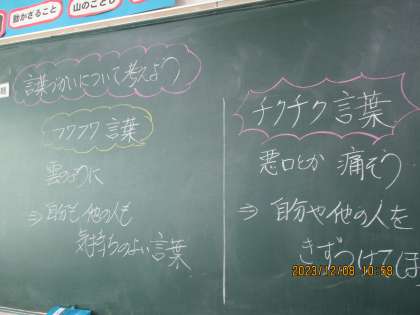 動かさること
山のことし
言葉づかいについて考えよう
フワフワ言葉
雲のように
⇒自分も他の人も
気持ちのよい言葉
チクチク言葉
悪口とか 痛そう
⇒自分や他の人を
きずつけて
2023/12/08 10:59